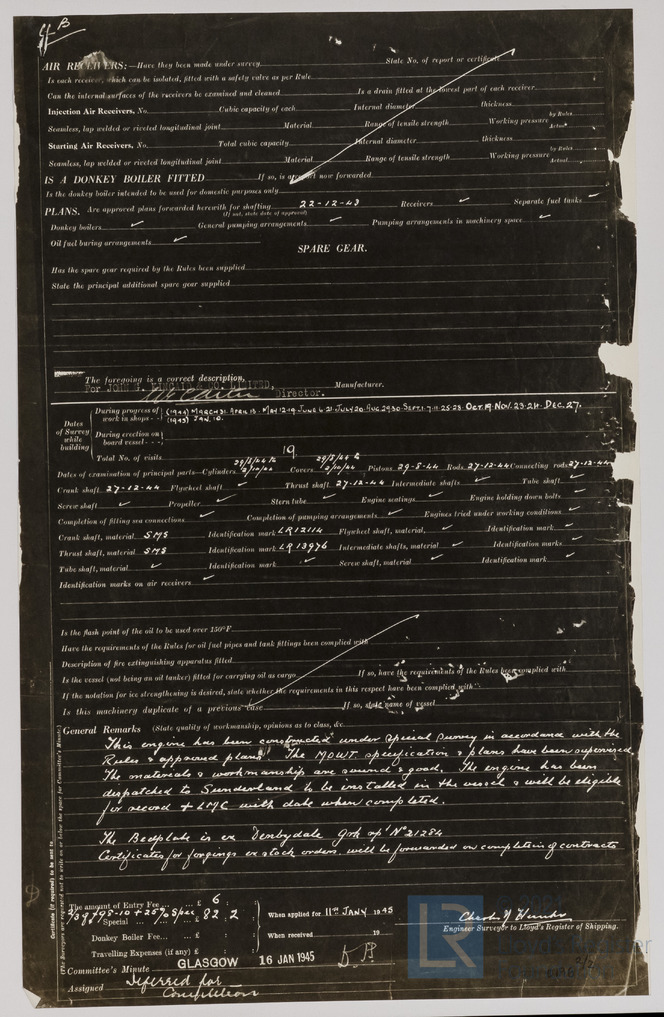 AIR RECEIVERS:—Have they been made under survey State No. of report or certificate
Is each receiver, which can be isolated, fitted with a safety valve as per Rule
Can the internal surfaces of the receivers be examined and cleaned Is a drain fitted at the lowest part of each receiver
Injection Air Receivers, No. Cubic capacity of each Internal diameter thickness
Seamless, lap welded or riveted longitudinal joint Material Range of tensile strength Working pressure by Rules Actual
Starting Air Receivers, No. Total cubic capacity Internal diameter thickness
Seamless, lap welded or riveted longitudinal joint Material Range of tensile strength Working pressure by Rules Actual
IS A DONKEY BOILER FITTED If so, is a report now forwarded
Is the donkey boiler intended to be used for domestic purposes only
PLANS. Are approved plans forwarded herewith for shafting 22-12-43 Receivers ✓ Separate fuel tanks ✓
(If not, state date of approval)
Donkey boilers ✓ General pumping arrangements ✓ Pumping arrangements in machinery space ✓
Oil fuel buring arrangements ✓
SPARE GEAR.
Has the spare gear required by the Rules been supplied
State the principal additional spare gear supplied
The foregoing is a correct description,
For JOHN G. KINCAID & CO. LIMITED, Manufacturer.
Director.
Dates of Survey while building
During progress of work in shops - - (1944) MARCH 31. APRIL 13. MAY 12.19. JUNE 6.21. JULY 20. AUG. 29.30. SEPT. 1.7.11.25.28. OCT. 19. NOV. 23.24. DEC. 27.
(1945) JAN. 10.
During erection on board vessel - - -
Total No. of visits 19
Dates of examination of principal parts—Cylinders 2/10/44 Covers 2/10/44 Pistons 29-8-44 Rods 27-12-44 Connecting rods 27-12-44
Crank shaft 27-12-44 Flywheel shaft ✓ Thrust shaft 27-12-44 Intermediate shafts ✓ Tube shaft ✓
Screw shaft ✓ Propeller ✓ Stern tube ✓ Engine seatings ✓ Engine holding down bolts ✓
Completion of fitting sea connections ✓ Completion of pumping arrangements ✓ Engines tried under working conditions ✓
Crank shaft, material SMS Identification mark LR 12114 Flywheel shaft, material, ✓ Identification mark ✓
Thrust shaft, material SMS Identification mark LR 13976 Intermediate shafts, material ✓ Identification marks ✓
Tube shaft, material ✓ Identification mark ✓ Screw shaft, material ✓ Identification mark ✓
Identification marks on air receivers ✓
Is the flash point of the oil to be used over 150°F
Have the requirements of the Rules for oil fuel pipes and tank fittings been complied with
Description of fire extinguishing apparatus fitted
Is the vessel (not being an oil tanker) fitted for carrying oil as cargo If so, have the requirements of the Rules been complied with
If the notation for ice strengthening is desired, state whether the requirements in this respect have been complied with
Is this machinery duplicate of a previous case If so, state name of vessel
General Remarks (State quality of workmanship, opinions as to class, &c.
This engine has been constructed under special survey in accordance with the
Rules & approved plans. The MOWT specification & plans have been supervised.
The materials & workmanship are sound & good. The engine has been
despatched to Sunderland to be installed in the vessel & will be eligible
for record + LMC with date when completed.
The Bedplate is ex "Derbydale" Grk rpt No 21284
Certificates for forgings ex stock orders will be forwarded on completion of contracts
Certificate (if required) to be sent to
(The Surveyors are requested not to write on or below the space for Committee's Minute.)
The amount of Entry Fee ... £ 6 : :
Special ... £ 82 : 2 :
Donkey Boiler Fee... £ : :
Travelling Expenses (if any) £ : :
When applied for 11TH JANY 1945
When received 19
Engineer Surveyor to Lloyd's Register of Shipping.
Committee's Minute GLASGOW 16 JAN 1945
Assigned Deferred for
Completion
LR